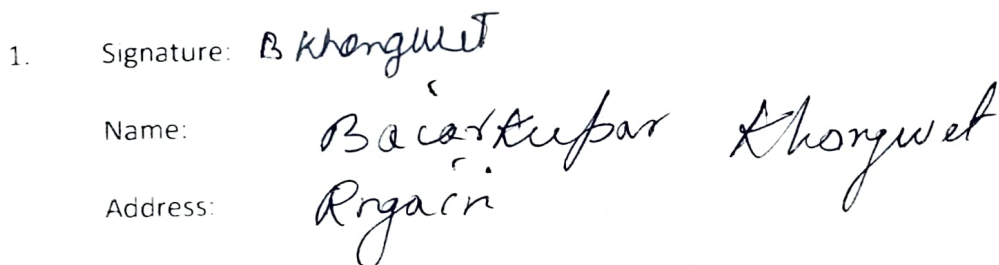 1. Signature: B Khongwet
Name: Baiarkupar Khongwet
Address: Rngain